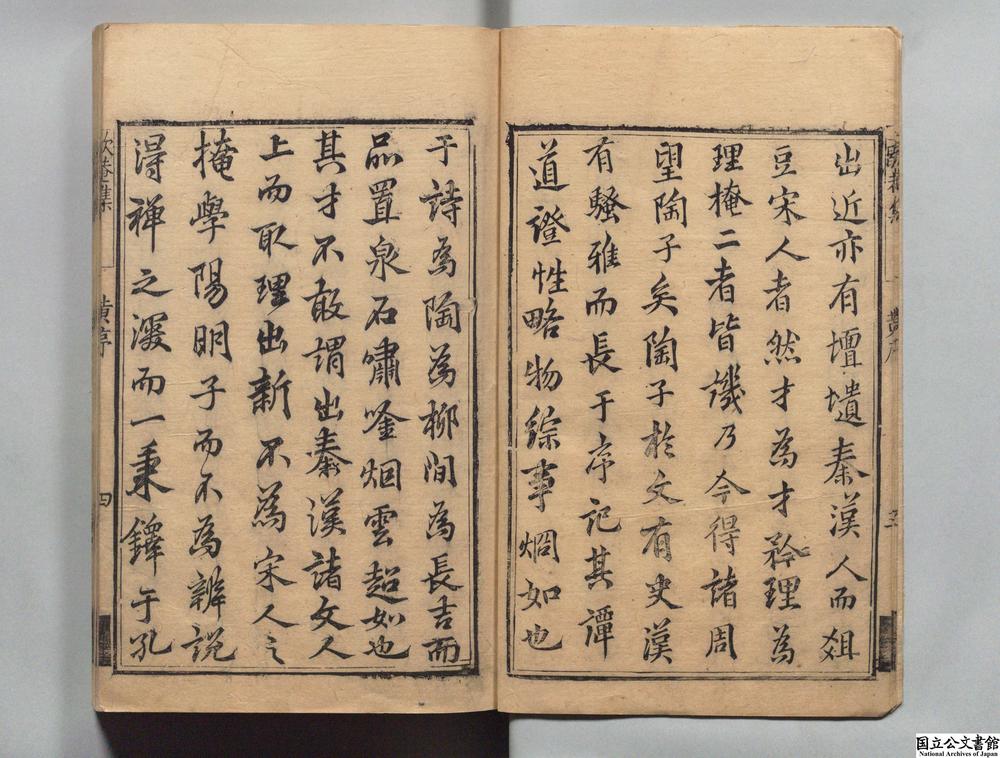 出近亦有壇墠秦漢人而俎
豆宋人者然才為才矜理為
理掩二者皆譏乃今得諸周
望陶子矣陶子於文有史漢
有騷雅而長于序記其譚
道證性略物綜事烱如也
于詩為陶為柳間為長吉而
品置泉石嘯唫烟雲超如也
其才不敢謂出秦漢諸文人
上而取理出新不為宋人之
掩學陽明子而不為辨說
得禅之深而一秉鐸于孔
歇菴集
一
黄序
四
国立公文書館
National Archives of Japan